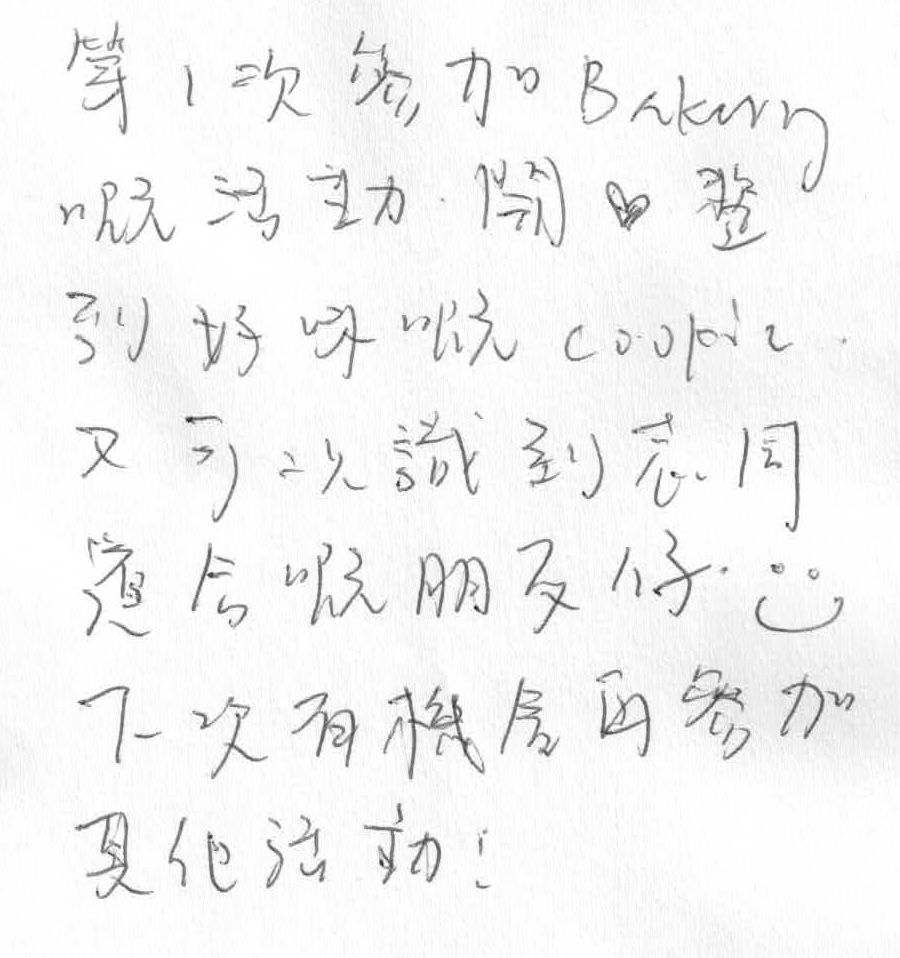 第1次參加Bakery
嘅活動.開♥整
到好味嘅cookie.
又可以識到志同
道合嘅朋友仔.
下次有機會再參加
其他活動!